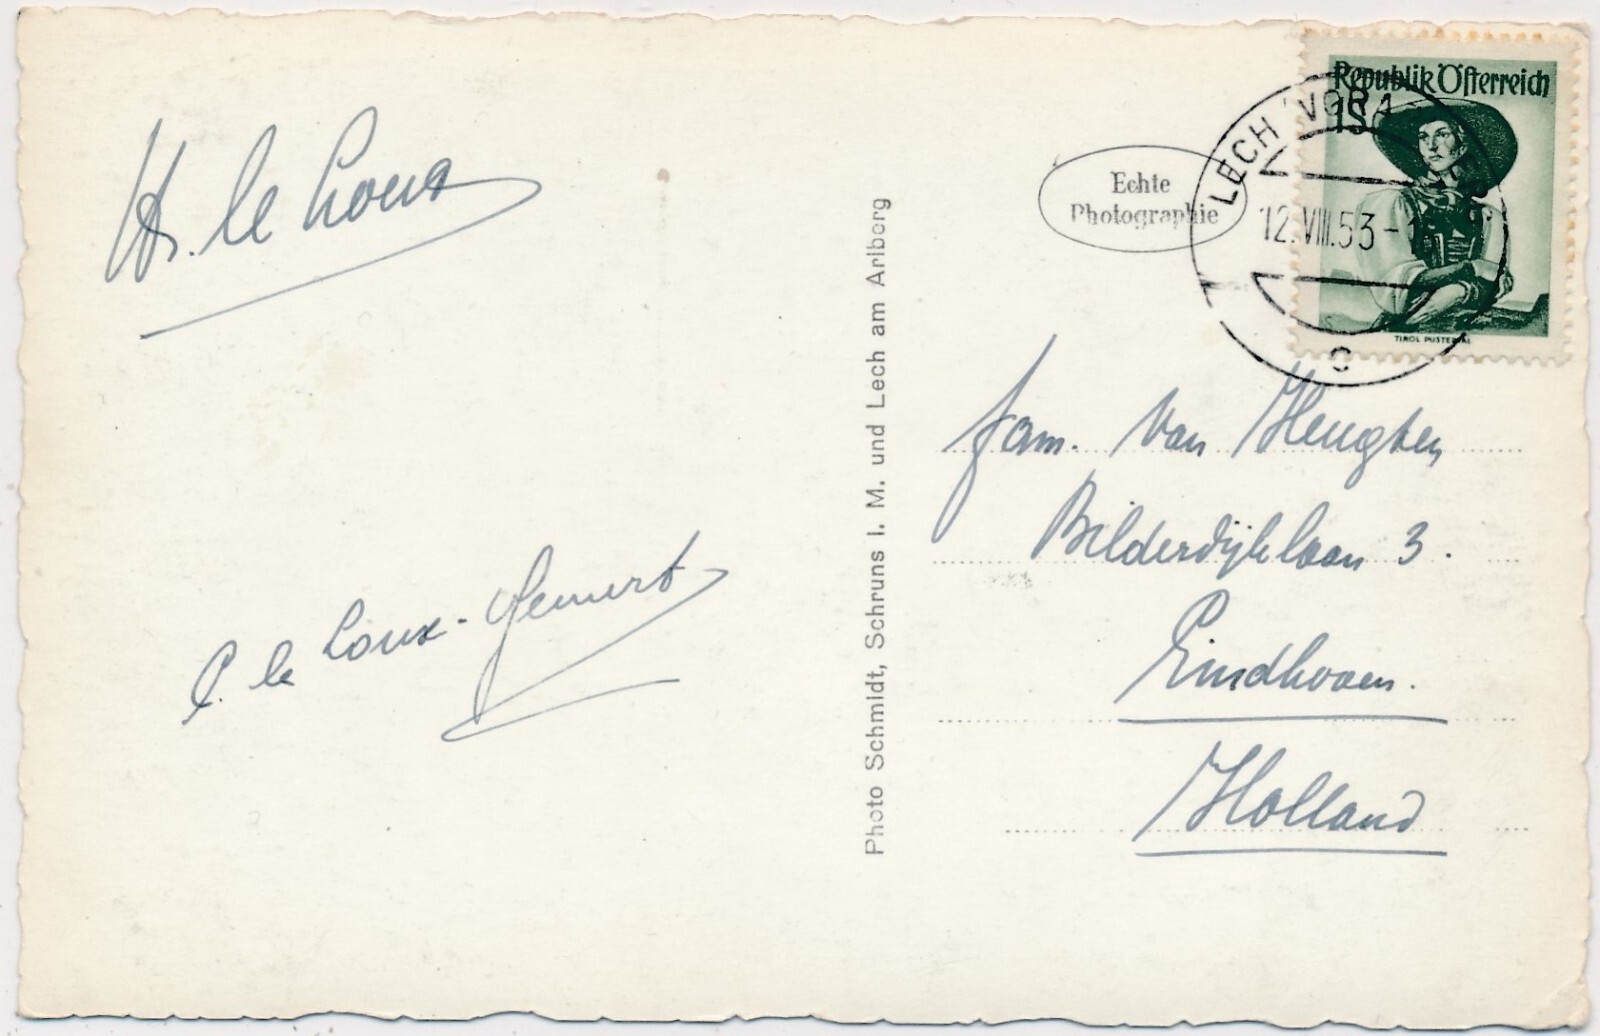 H. le Loux
C. le Loux-Gemert
Photo Schmidt, Schruns i. M. und Lech am Arlberg
Echte
Photographie
Republik Österreich
1S
TIROL PUSTERTAL
LECH VORA
12.VIII.53-1
c
fam. van Hengten
Bilderdijklaan 3.
Eindhoven.
Holland